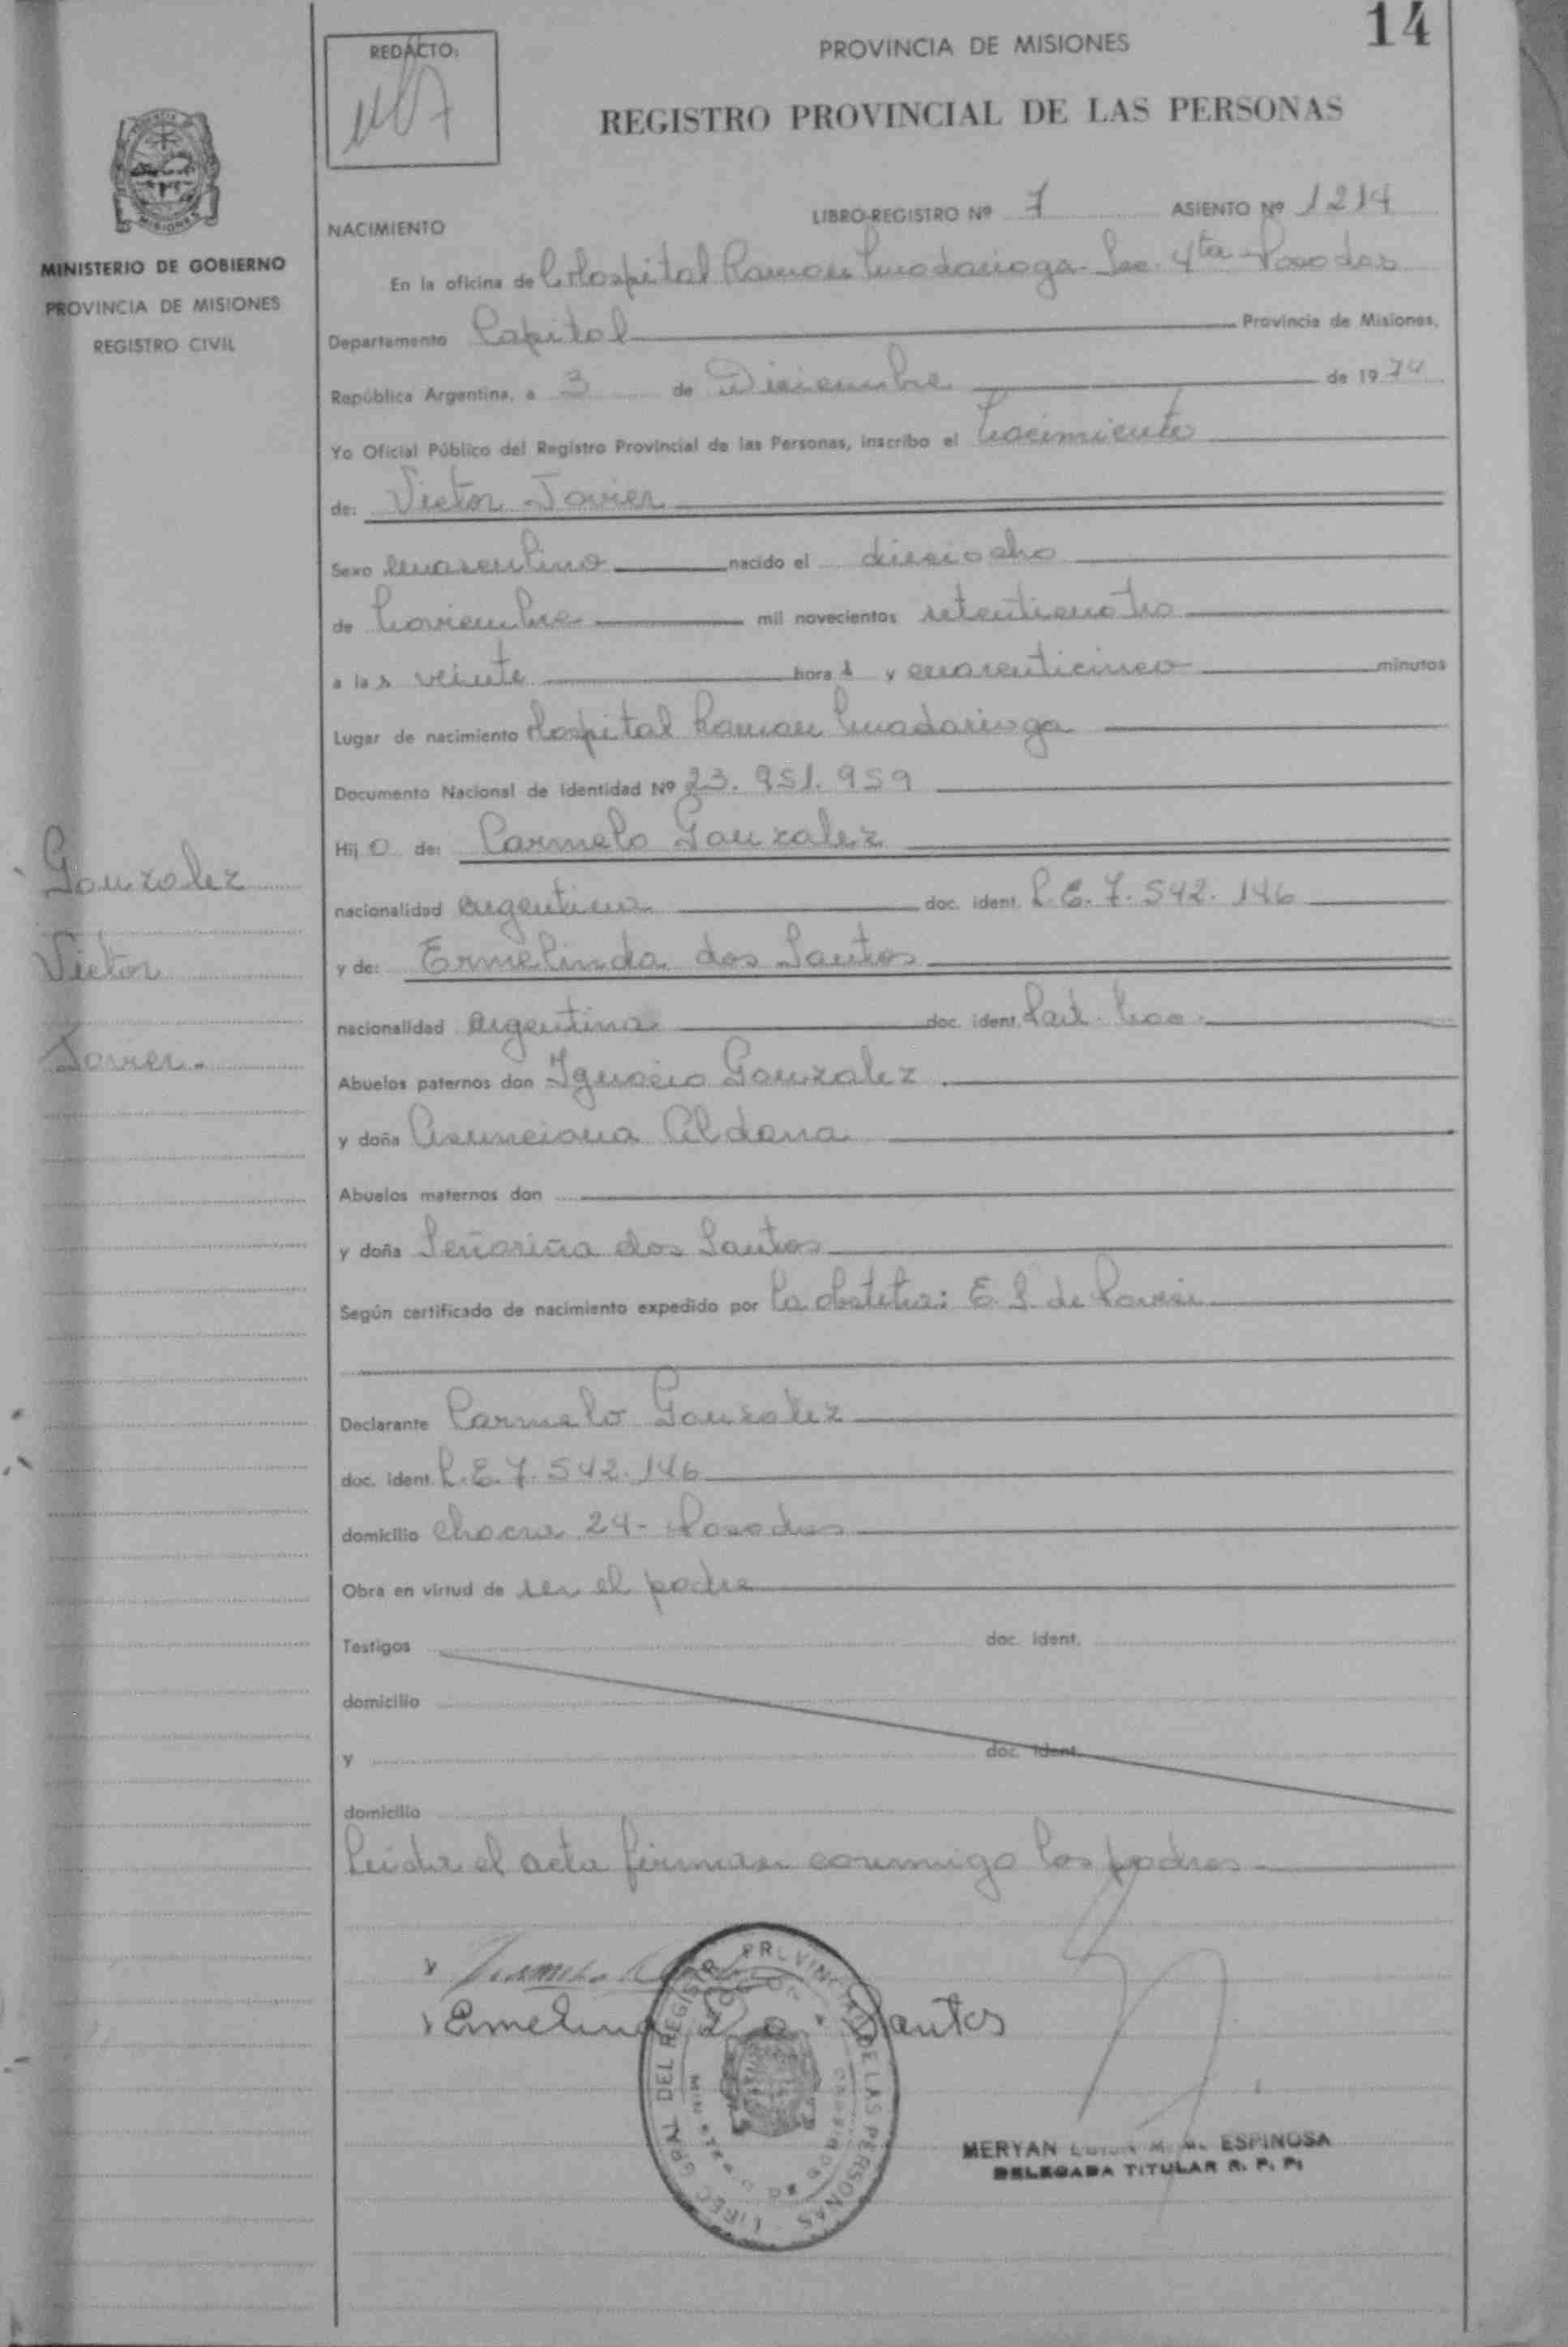 14
REDACTO:
PROVINCIA DE MISIONES
REGISTRO PROVINCIAL DE LAS PERSONAS
MISIONES
MINISTERIO DE GOBIERNO
PROVINCIA DE MISIONES
REGISTRO CIVIL
NACIMIENTO
LIBRO-REGISTRO Nº 7 ASIENTO Nº 1214
En la oficina de Hospital Ramon Madariaga Sec. 4ta Posadas
Departamento Capital Provincia de Misiones,
República Argentina, a 3 de Diciembre de 1974
Yo Oficial Público del Registro Provincial de las Personas, inscribo el Nacimiento
de: Victor Javier
Sexo masculino nacido el dieciocho
de Noviembre mil novecientos setenticuatro
a las veinte horas y cuarenticinco minutos
Lugar de nacimiento Hospital Ramon Madariaga
Documento Nacional de Identidad Nº 23.951.959
Hijo de: Carmelo Gonzalez
nacionalidad argentino doc. ident. L.E. 7.542.146
y de: Ermelinda dos Santos
nacionalidad argentina doc. ident. Part. Nac.
Abuelos paternos don Ignacio Gonzalez
y doña Asunciona Aldana
Abuelos maternos don
y doña Señoriña dos Santos
Según certificado de nacimiento expedido por la obstetra: E. S. de
Declarante Carmelo Gonzalez
doc. ident. L.E. 7.542.146
domicilio chacra 24- Posadas
Obra en virtud de ser el padre
Testigos doc. ident.
domicilio
y doc. ident.
domicilio
Leida el acta firman conmigo los padres
Gonzalez
Victor
Javier.
Ermelinda Do Santos
DIREC. GRAL. DEL REGISTR. PROVINCIAL DE LAS PERSONAS
MERYAN M. ESPINOSA
DELEGADA TITULAR R. P. P.